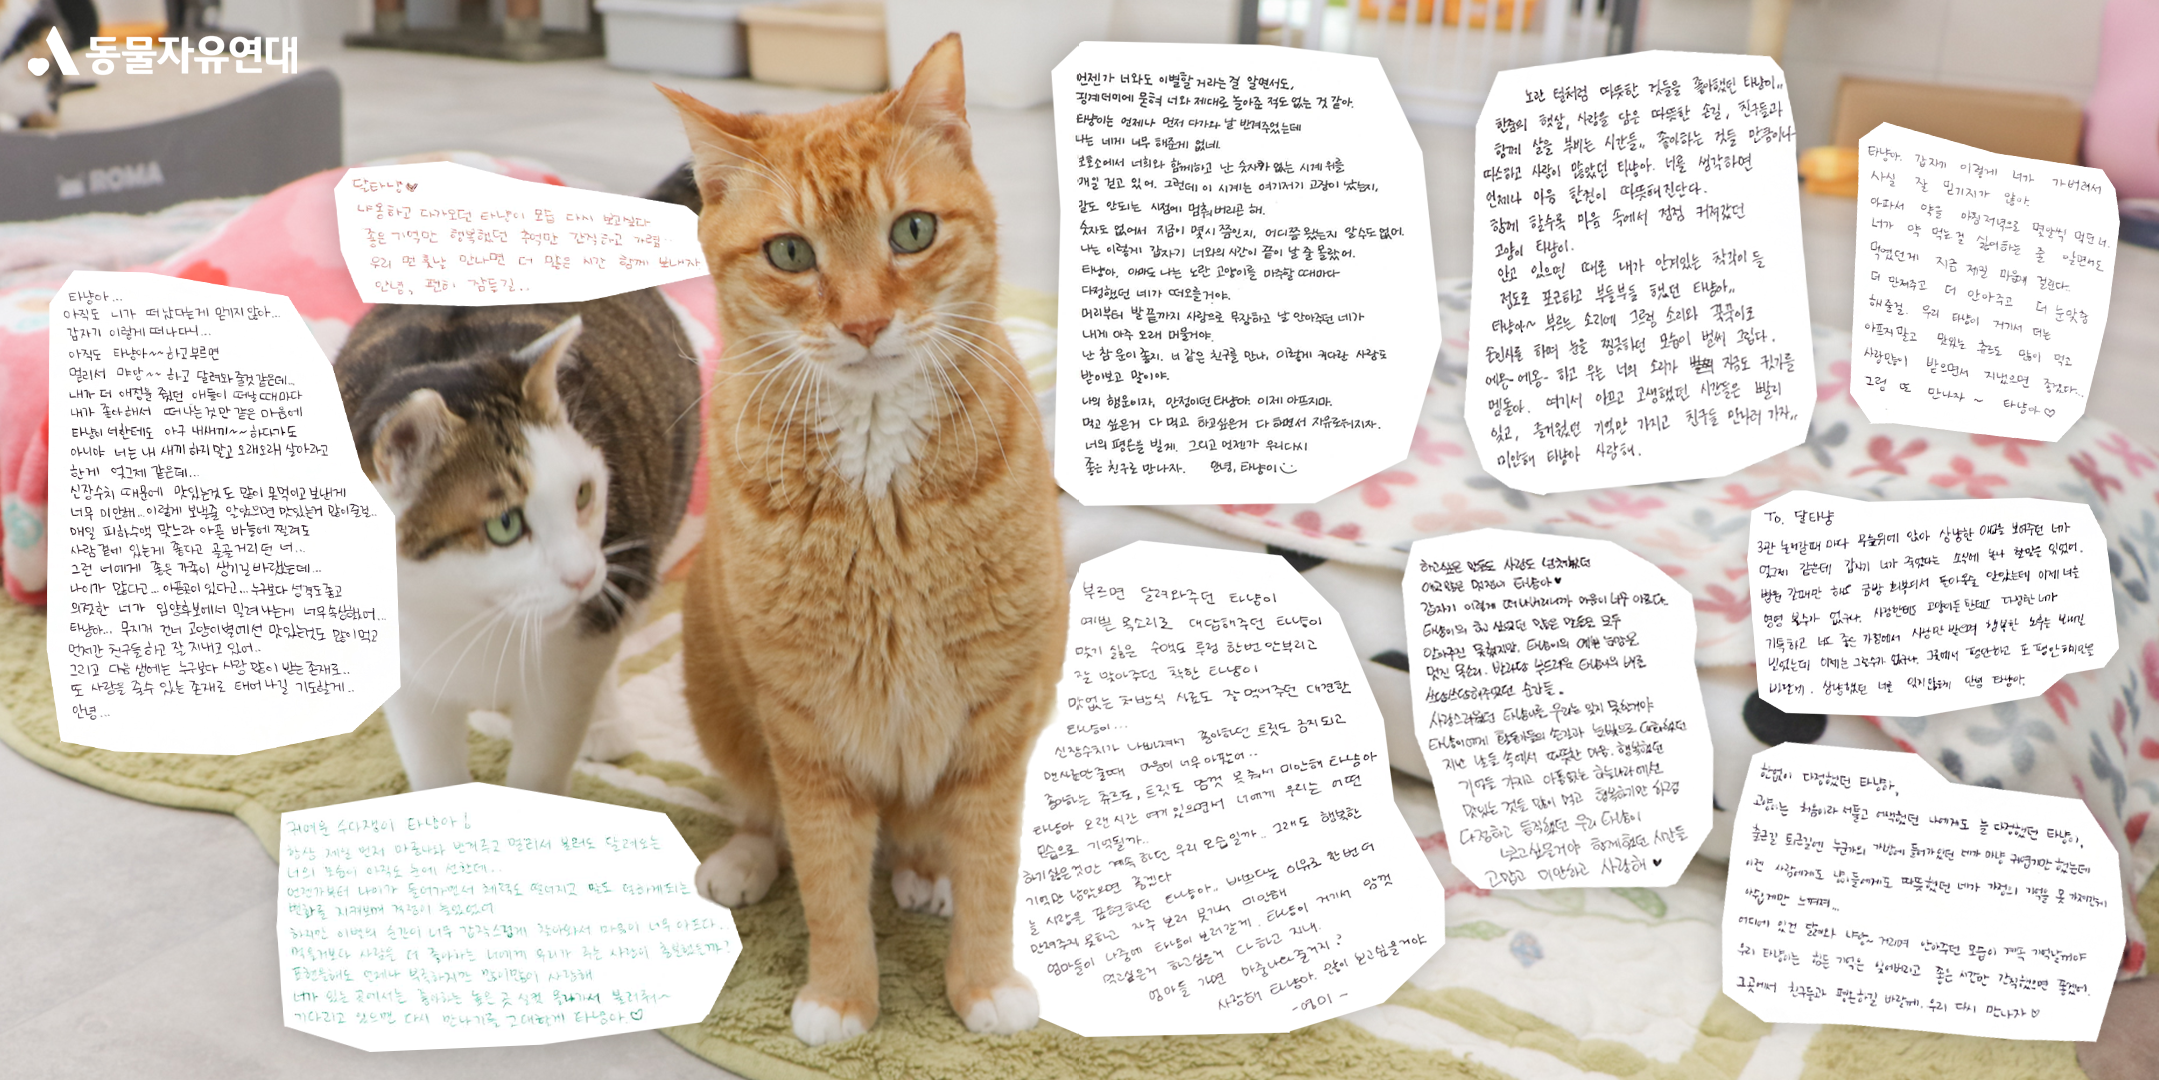 동물자유연대
ROMA
달타냥♥
냐옹하고 다가오던 타냥이 모습 다시 보고싶다
좋은기억만 행복했던 추억만 간직하고 가렴..
우리 먼훗날 만나면 더 많은 시간 함께 보내자
안녕, 편히 잠들길..
타냥아...
아직도 니가 떠났다는게 믿기지않아...
갑자기 이렇게 떠나다니...
아직도 타냥아~~하고부르면
멀리서 먀앙~~ 하고 달려와줄것같은데...
내가 더 애정을 줬던 애들이 떠날때마다
내가 좋아해서 떠나는것만 같은 마음에
타냥이 너한테도 아구 내새끼~~하다가도
아니야 너는 내 새끼 하지말고 오래오래 살아라고
한게 엊그제 같은데...
신장수치 때문에 맛있는것도 많이 못먹이고 보낸게
너무 미안해...이렇게 보낼줄 알았으면 맛있는거 많이줄걸..
매일 피하수액 맞느라 아픈 바늘에 찔려도
사람곁에 있는게 좋다고 골골거리던 너...
그런 너에게 좋은 가족이 생기길 바랬는데...
나이가 많다고... 아픈곳이 있다고... 누구보다 성격도 좋고
의젓한 너가 입양후보에서 밀려나는게 너무속상했어...
타냥아... 무지개 건너 고양이별에선 맛있는것도 많이먹고
먼저간 친구들하고 잘 지내고 있어..
그리고 다음 생에는 누구보다 사랑 많이 받는 존재로..
또 사랑을 줄수 있는 존재로 태어나길 기도할게..
안녕...
귀여운 수다쟁이 타냥아!
항상 제일 먼저 마중나와 반겨주고 멀리서 불러도 달려오는
너의 모습이 아직도 눈에 선한데..
언젠가부터 나이가 들어가면서 체력도 떨어지고 말도 덜하게되는
변화를 지켜보며 걱정이 늘었었어
하지만 이별의 순간이 너무 갑작스럽게 찾아와서 마음이 너무 아프다..
먹을거보다 사랑을 더 좋아하는 너에게 우리가 주는 사랑이 충분했을까?
표현을해도 언제나 부족하지만 많이많이 사랑해
네가 있는 곳에서는 좋아하는 높은 곳 실컷 올라가서 불러줘~
기다리고 있으면 다시 만나기를 고대할게 타냥아.♡
언젠가 너와도 이별할 거라는걸 알면서도,
핑계더미에 묻혀 너와 제대로 놀아준 적도 없는 것 같아.
타냥이는 언제나 먼저 다가와 날 반겨주었는데
나는 네게 너무 해준게 없네.
보호소에서 너희와 함께하고 난 숫자가 없는 시계 위를
매일 걷고 있어. 그런데 이 시계는 여기저기 고장이 났는지,
말도 안되는 시점에 멈춰버리곤 해.
숫자도 없어서 지금이 몇시 쯤인지, 어디쯤 왔는지 알수도 없어.
나는 이렇게 갑자기 너와의 시간이 끝이 날 줄 몰랐어.
타냥아, 아마도 나는 노란 고양이를 마주할 때마다
다정했던 네가 떠오를거야.
머리부터 발끝까지 사랑으로 무장하고 날 안아주던 네가
내게 아주 오래 머물거야.
난 참 운이 좋지. 너 같은 친구를 만나, 이렇게 커다란 사랑도
받아보고 말이야.
나의 행운이자, 안정이던 타냥아. 이제 아프지마.
먹고 싶은거 다 먹고 하고싶은거 다 하면서 자유로워지자.
너의 평온을 빌게. 그리고 언젠가 우리다시
좋은 친구로 만나자. 안녕, 타냥이
노란 털처럼 따뜻한 것들을 좋아했던 타냥이..
한줌의 햇살, 사랑을 담은 따뜻한 손길, 친구들과
함께 살을 부비는 시간들.. 좋아하는 것들 만큼이나
따스하고 사랑이 많았던 타냥아. 너를 생각하면
언제나 마음 한켠이 따뜻해진단다.
함께 할수록 마음 속에서 점점 커져갔던
고양이 타냥이.
안고 있으면 때론 내가 안겨있는 착각이 들
정도로 포근하고 부들부들 했던 타냥아..
타냥아~ 부르는 소리에 그르렁 소리와 꾹꾹이로
손인사를 하며 눈을 찡긋하던 모습이 벌써 그립다.
에옹- 에옹- 하고 우는 너의 소리가 지금도 귓가를
맴돌아. 여기서 아프고 고생했던 시간들은 빨리
잊고, 즐거웠던 기억만 가지고 친구들 만나러 가자..
미안해 타냥아 사랑해.
타냥아. 갑자기 이렇게 너가 가버려서
사실 잘 믿기지가 않아.
아파서 약을 아침저녁으로 몇알씩 먹던 너.
너가 약 먹는걸 싫어하는 줄 알면서도
먹였던게 지금 제일 마음에 걸린다.
더 만져주고 더 안아주고 더 눈맞춤
해줄걸. 우리 타냥이 거기서 더는
아프지말고 맛있는 츄르도 많이 먹고
사랑많이 받으면서 지냈으면 좋겠다...
그럼 또 만나자~ 타냥아♡
부르면 달려와주던 타냥이
예쁜 목소리로 대답해주던 타냥이
맞기 싫은 수액도 투정 한번 안부리고
잘 맞아주던 착한 타냥이
맛없는 처방식 사료도 잘 먹어주던 대견한
타냥이...
신장수치가 나빠져서 좋아하던 트릿도 금지되고
캔사료만 줄때 마음이 너무 아팠어..
좋아하는 츄르도, 트릿도 맘껏 못줘서 미안해 타냥아
타냥아 오랜 시간 여기 있으면서 너에게 우리는 어떤
모습으로 기억될까..
하기싫은것만 계속 하던 우리 모습일까.. 그래도 행복한
기억만 남았으면 좋겠다
늘 사랑을 표현하던 타냥아.. 바쁘다는 이유로 한번 더
만져주지 못하고 자주 보러 못가서 미안해
엄마들이 나중에 타냥이 보러갈게. 타냥이 거기서 맘껏
먹고싶은거 하고싶은거 다 하고 지내.
엄마들 가면 마중나와줄거지?
사랑해 타냥아. 많이 보고싶을거야
하고싶은 말들도 사랑도 넘쳐났던
애교많은 멋쟁이 타냥아♥
갑자기 이렇게 떠나버리니까 마음이 너무 아프다.
타냥이의 하고 싶었던 많은 말들을 모두
알아주진 못했지만, 타냥이의 예쁜 눈망울
멋진 목소리, 반짝이던 부드러운 타냥이의 배를
쓰담쓰담해주었던 순간들.
사랑스러웠던 타냥이를 우리는 잊지 못할거야
타냥이에게 활동가들의 손길과 눈빛으로 대화했던
지난 날들 속에서 따뜻한 마음, 행복했던
기억들 가지고 아픔없는 하늘나라에선
맛있는 것들 많이 먹고 행복하기만 하렴
다정하고 듬직했던 우리 타냥이
보고싶을거야 함께했던 시간들
고맙고 미안하고 사랑해 ♥
To. 달타냥
3관 놀러갈때 마다 무릎위에 앉아 상냥한 애교를 보여주던 너가
엊그제 같은데 갑자기 너가 죽었다는 소식에 놀라 할말을 잃었어.
병원 갈때만 해도 금방 회복해서 돌아올줄 알았는데 이제 너를
영영 볼수가 없구나. 사람한테도 고양이들한테도 다정한 너가
기특하고 너도 좋은 가정에서 사랑만 받으며 행복한 노후를 보내길
빌었는데 이제는 그럴수가 없구나. 그곳에서 평안하고 또 평안하기만을
바랄게. 상냥했던 너를 잊지않을게 안녕 타냥아.
한없이 다정했던 타냥아,
고양이는 처음이라 서툴고 어색했던 나에게도 늘 다정했던 타냥이,
출근길 퇴근길엔 누군가의 가방에 들어가있던 네가 마냥 귀엽기만 했는데
이젠 사람에게도 냥이들에게도 따뜻했던 네가 가정의 기억을 못 가져간게
아쉽게만 느껴져...
어디에 있건 달려와 냐앙~ 거리며 안아주던 모습이 계속 기억날거야
우리 타냥이는 힘든 기억은 잊어버리고 좋은 시간만 간직했으면 좋겠어.
그곳에서 친구들과 평온하길 바랄게. 우리 다시 만나자♡